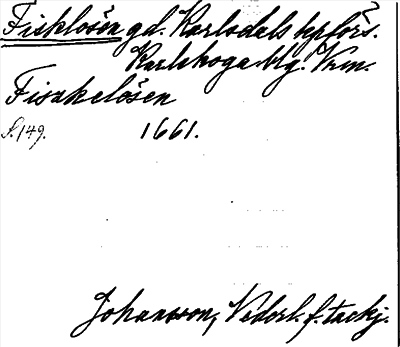 Fisklösen gd. Karlsdals kpförs.
Karlskoga blg. Vrm.
Fiszkelösen
S. 149. 1661.
Johansson, Vedorl. f. tackj.